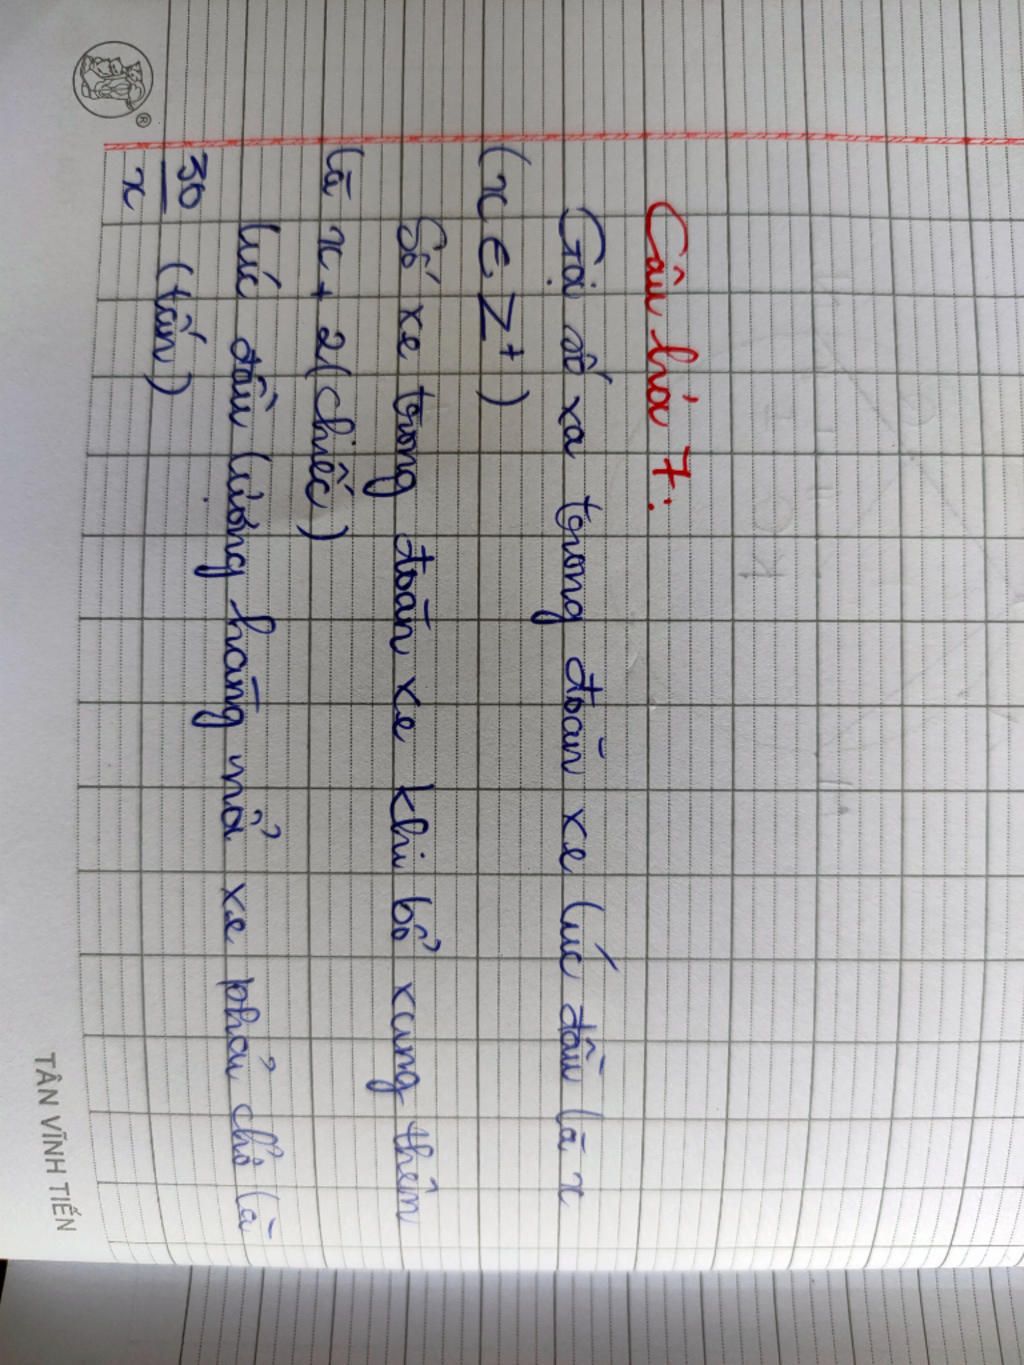 Câu hỏi 7:
Gọi số xa trong đoàn xe lúc đầu là x
(x ∈ Z⁺)
Số xe trong đoàn xe khi bổ xung thêm
là x + 2 (chiếc)
lúc đầu lượng hàng mỗi xe phải chở là
30/x (tấn)
TÂN VĨNH TIẾN
®